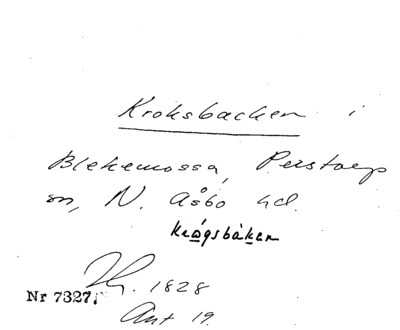 Kroksbacken i
Blekemossa, Perstorp
sn, N. Åsbo hd.
krågsbàken
1828
Nr 7327.
Ant 19.